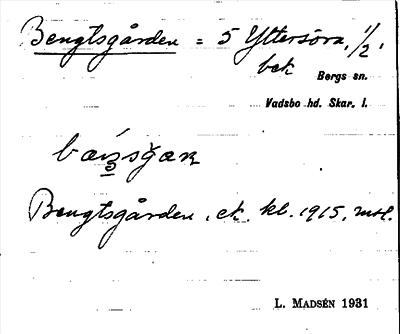 Bengtsgården = 5 Yttersöra, 1/2,
bck
Bergs sn.
Vadsbo hd. Skar. l.
Bengtsgården, ek. kl. 1915,
L. MADSÉN 1931